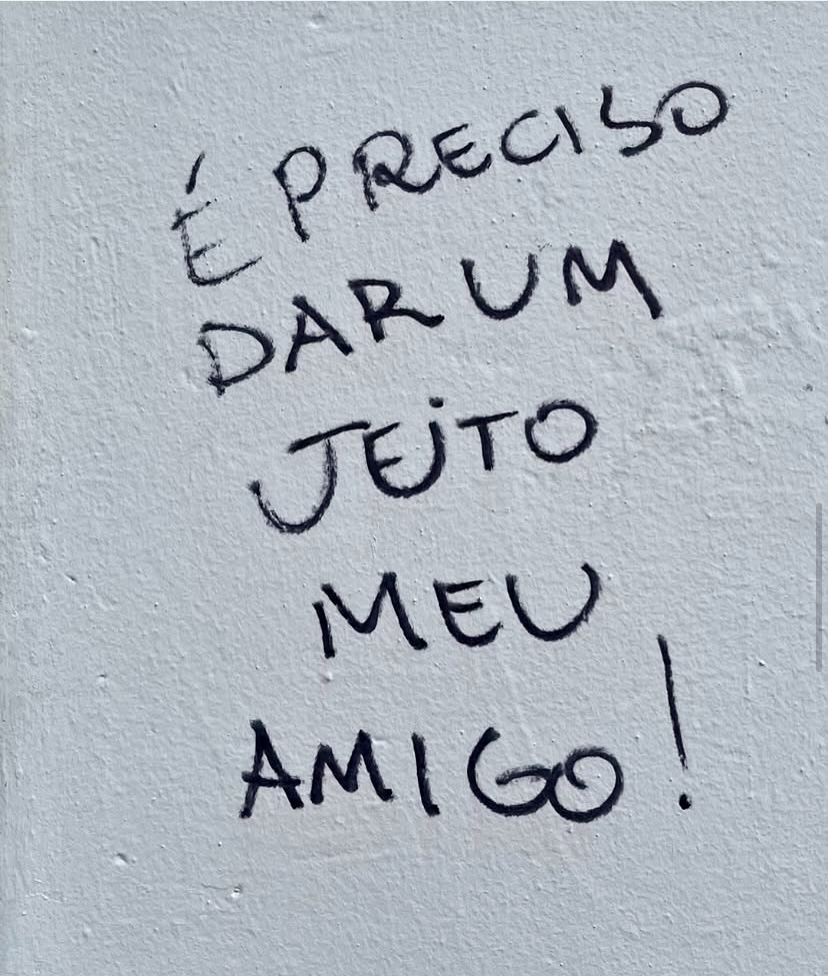 É PRECISO
DAR UM
JEITO
MEU
AMIGO!